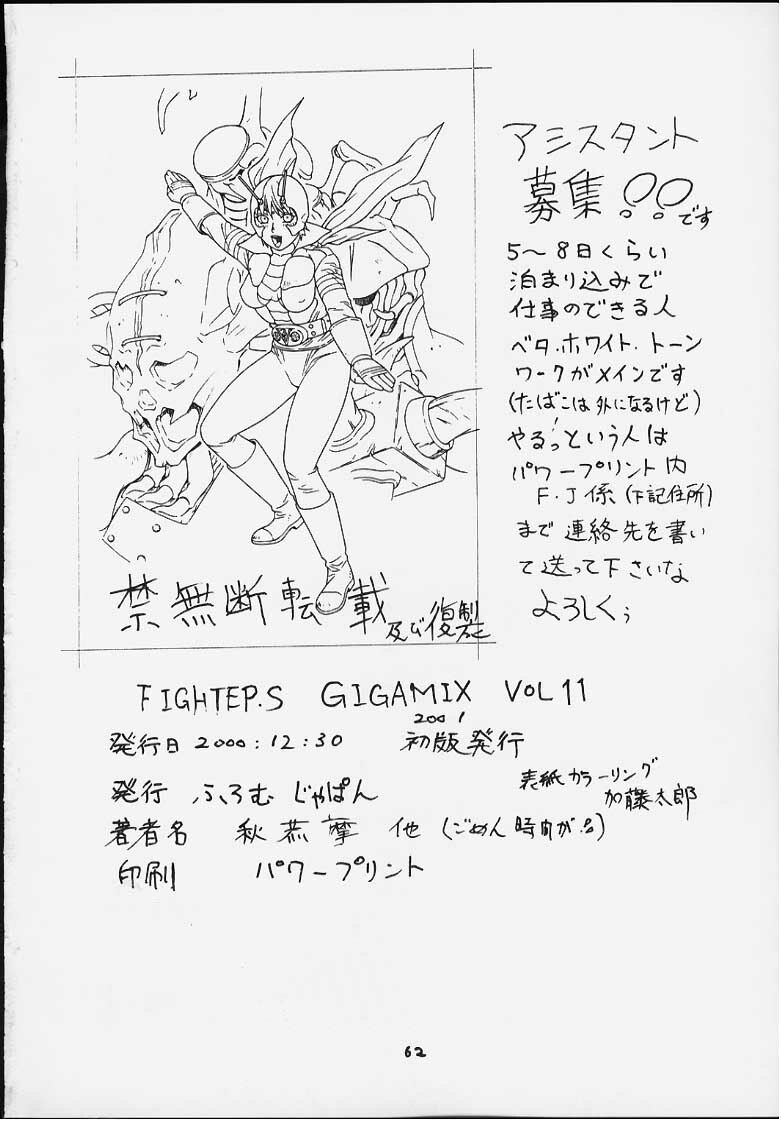 アシスタント
募集!!です
5〜8日くらい
泊まり込みで
仕事のできる人
ベタ.ホワイト.トーン
ワークがメインです
(たばこは外になるけど)
やるっ!という人は
パワープリント内
F.J係(下記住所)
まで連絡先を書い
て送って下さいな
よろしくぅ
禁無断転載
及び復製
FIGHTEP.S GIGAMIX VOL 11
発行日 2000:12:30
2001
初版発行
発行 ふろむ じゃぱん
表紙カラーリング
加藤太郎
著者名 秋恭摩 他 (ごめん時間が
印刷 パワープリント
62